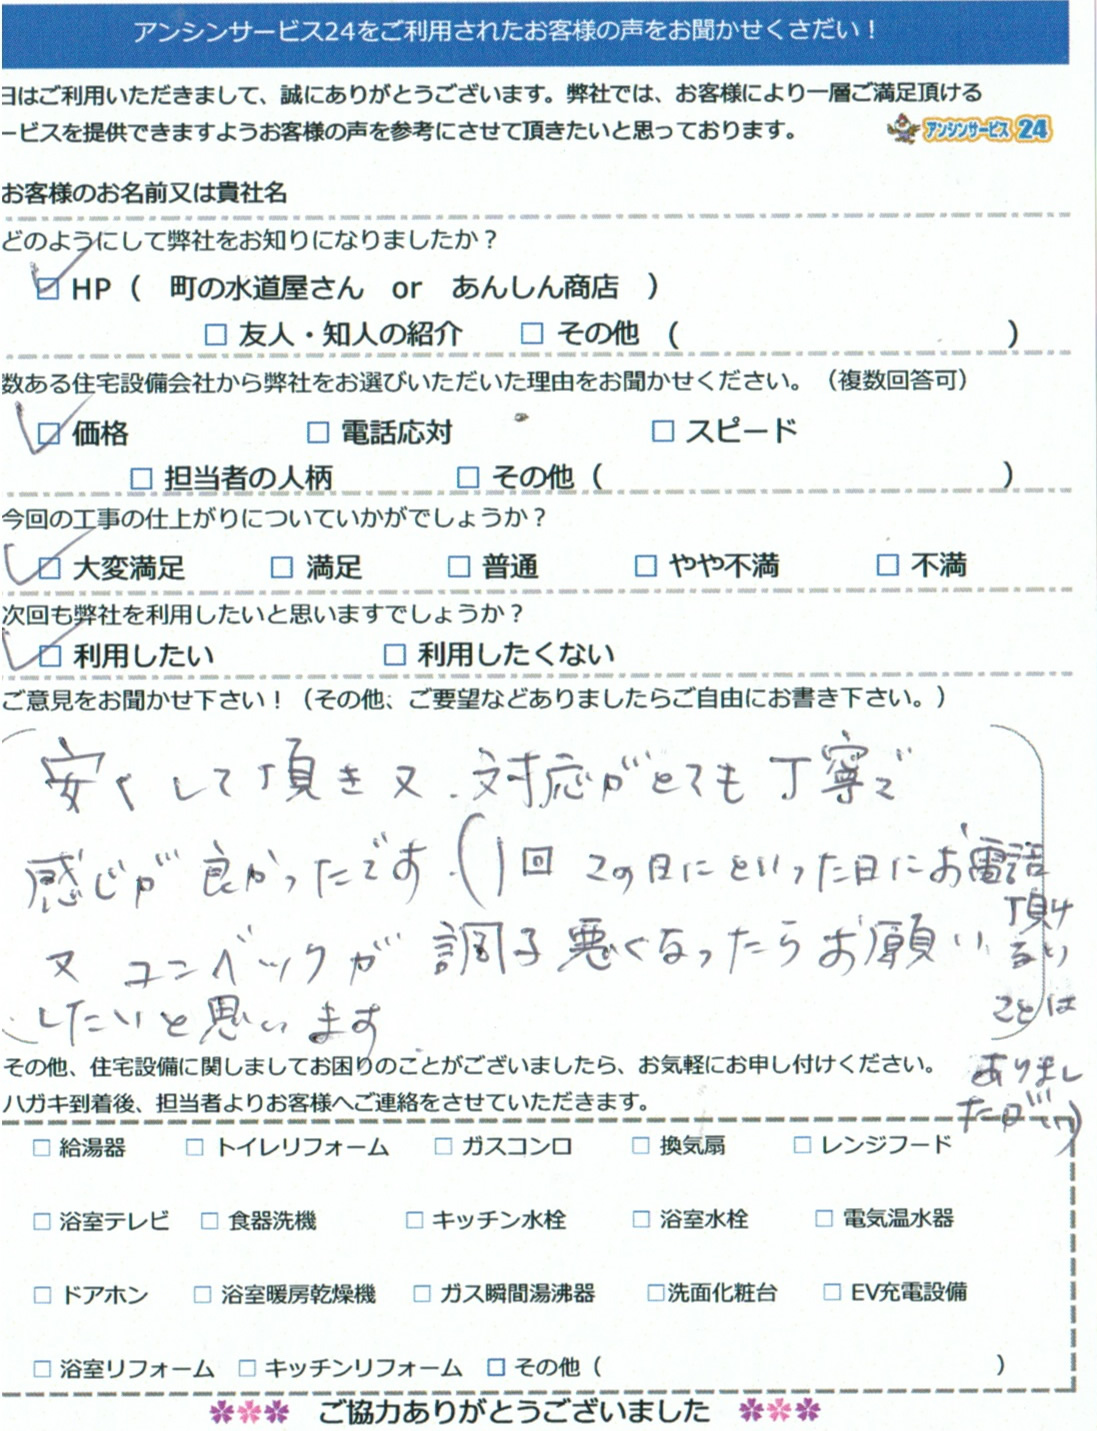 アンシンサービス24をご利用されたお客様の声をお聞かせくさだい！
日はご利用いただきまして、誠にありがとうございます。弊社では、お客様により一層ご満足頂ける
ービスを提供できますようお客様の声を参考にさせて頂きたいと思っております。
アンシンサービス24
お客様のお名前又は貴社名
どのようにして弊社をお知りになりましたか？
☑ HP（　町の水道屋さん　or　あんしん商店　）
□ 友人・知人の紹介　□ その他　（　）
数ある住宅設備会社から弊社をお選びいただいた理由をお聞かせください。（複数回答可）
☑ 価格　□ 電話応対　□ スピード
□ 担当者の人柄　□ その他（　）
今回の工事の仕上がりについていかがでしょうか？
☑ 大変満足　□ 満足　□ 普通　□ やや不満　□ 不満
次回も弊社を利用したいと思いますでしょうか？
☑ 利用したい　□ 利用したくない
ご意見をお聞かせ下さい！（その他、ご要望などありましたらご自由にお書き下さい。）
安くして頂き又、対応がとても丁寧で
感じが良かったです。（1回 この日にといった日にお電話
頂け
るい
ことは
ありまし
たが
又 コンベックが 調子悪くなったらお願い
したいと思います
その他、住宅設備に関しましてお困りのことがございましたら、お気軽にお申し付けください。
ハガキ到着後、担当者よりお客様へご連絡をさせていただきます。
□ 給湯器　□ トイレリフォーム　□ ガスコンロ　□ 換気扇　□ レンジフード
□ 浴室テレビ　□ 食器洗機　□ キッチン水栓　□ 浴室水栓　□ 電気温水器
□ ドアホン　□ 浴室暖房乾燥機　□ ガス瞬間湯沸器　□洗面化粧台　□ EV充電設備
□ 浴室リフォーム　□ キッチンリフォーム　□ その他（　）
ご協力ありがとうございました